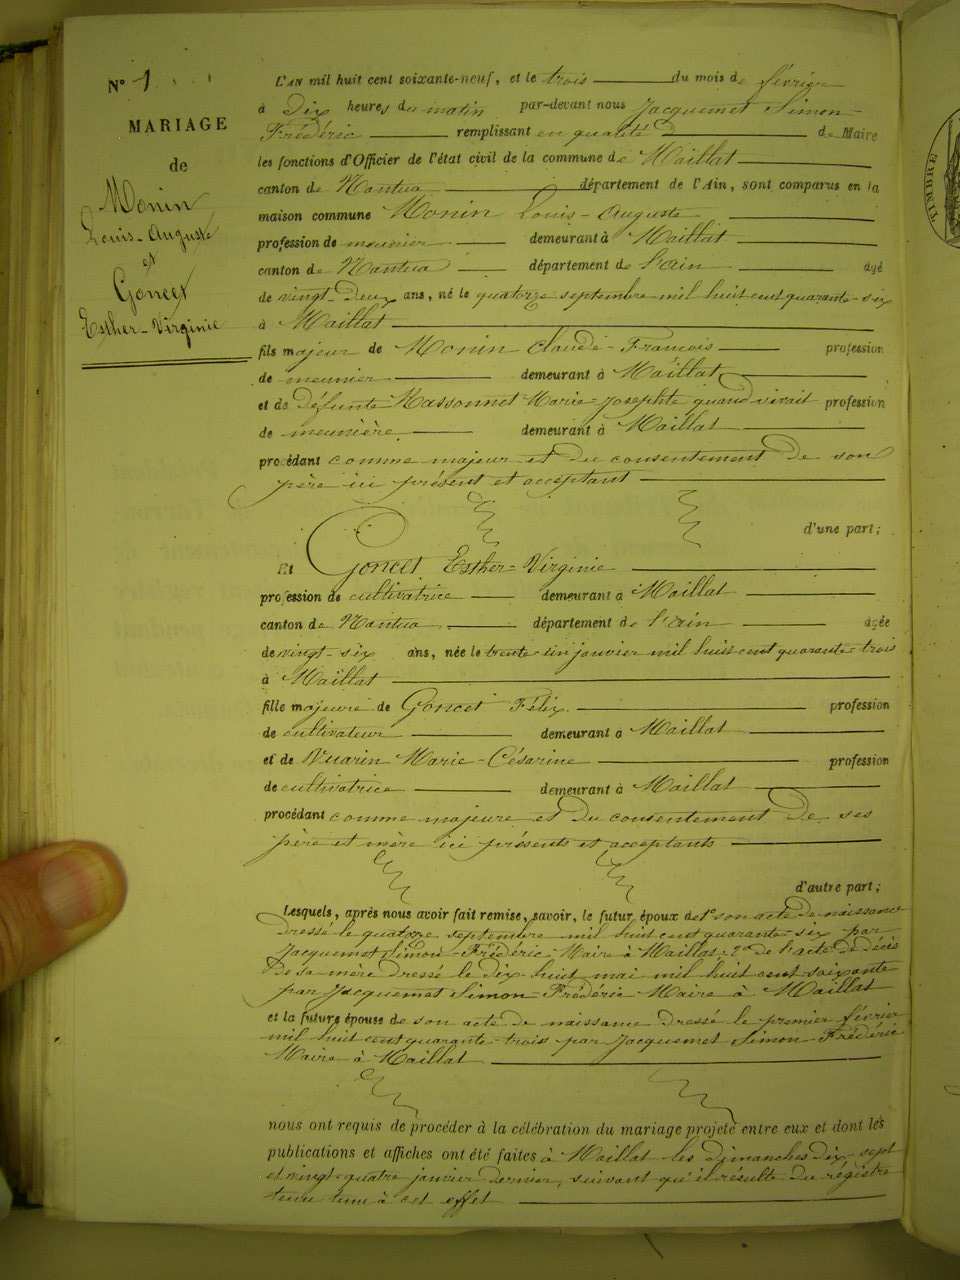 N° 1
MARIAGE
de
Monin
Louis-Auguste
et
Goncet
Esther-Virginie
L'AN mil huit cent soixante-neuf, et le trois du mois de février
à Dix heures du matin par-devant nous Jacquemet Simon
Frédéric remplissant en qualité de Maire
les fonctions d'Officier de l'état civil de la commune de Maillat
canton de Nantua département de l'Ain, sont comparus en la
maison commune Monin Louis-Auguste
profession de meunier demeurant à Maillat
canton de Nantua département de l'ain âgé
de vingt-Deux ans, né le quatorze septembre mil huit cent quarante-six
à Maillat
fils majeur de Monin Claude-François profession
de meunier demeurant à Maillat
et de Défunte Massonnet Marie-Josephte quand vivait profession
de meunière demeurant à Maillat
procédant comme majeur et du consentement de son
père ici présent et acceptant
d'une part;
Et Goncet Esther-Virginie
profession de cultivatrice demeurant à Maillat
canton de Nantua département de l'ain âgée
de vingt-six ans, née le trente un janvier mil huit cent quarante-trois
à Maillat
fille majeure de Goncet Félix profession
de cultivateur demeurant à Maillat
et de Vuarin Marie-Césarine profession
de cultivatrice demeurant à Maillat
procédant comme majeure et du consentement de ses
père et mère ici présents et acceptants
d'autre part;
Lesquels, après nous avoir fait remise, savoir, le futur époux de 1° son acte de naissance
Dressé le quatorze septembre mil huit cent quarante-six par
Jacquemet Simon-Frédéric Maire à Maillat; 2° de l'acte de décès
De sa mère Dressé le dix-huit mai mil huit cent soixante
par Jacquemet Simon-Frédéric Maire à Maillat
et la future épouse de son acte de naissance dressé le premier février
mil huit cent quarante-trois par Jacquemet Simon-Frédéric
Maire à Maillat
nous ont requis de procéder à la célébration du mariage projeté entre eux et dont les
publications et affiches ont été faites à Maillat les dimanches dix-sept
et vingt-quatre janvier dernier, suivant qu'il résulte du régistre
tenu à cet effet
TIMBRE